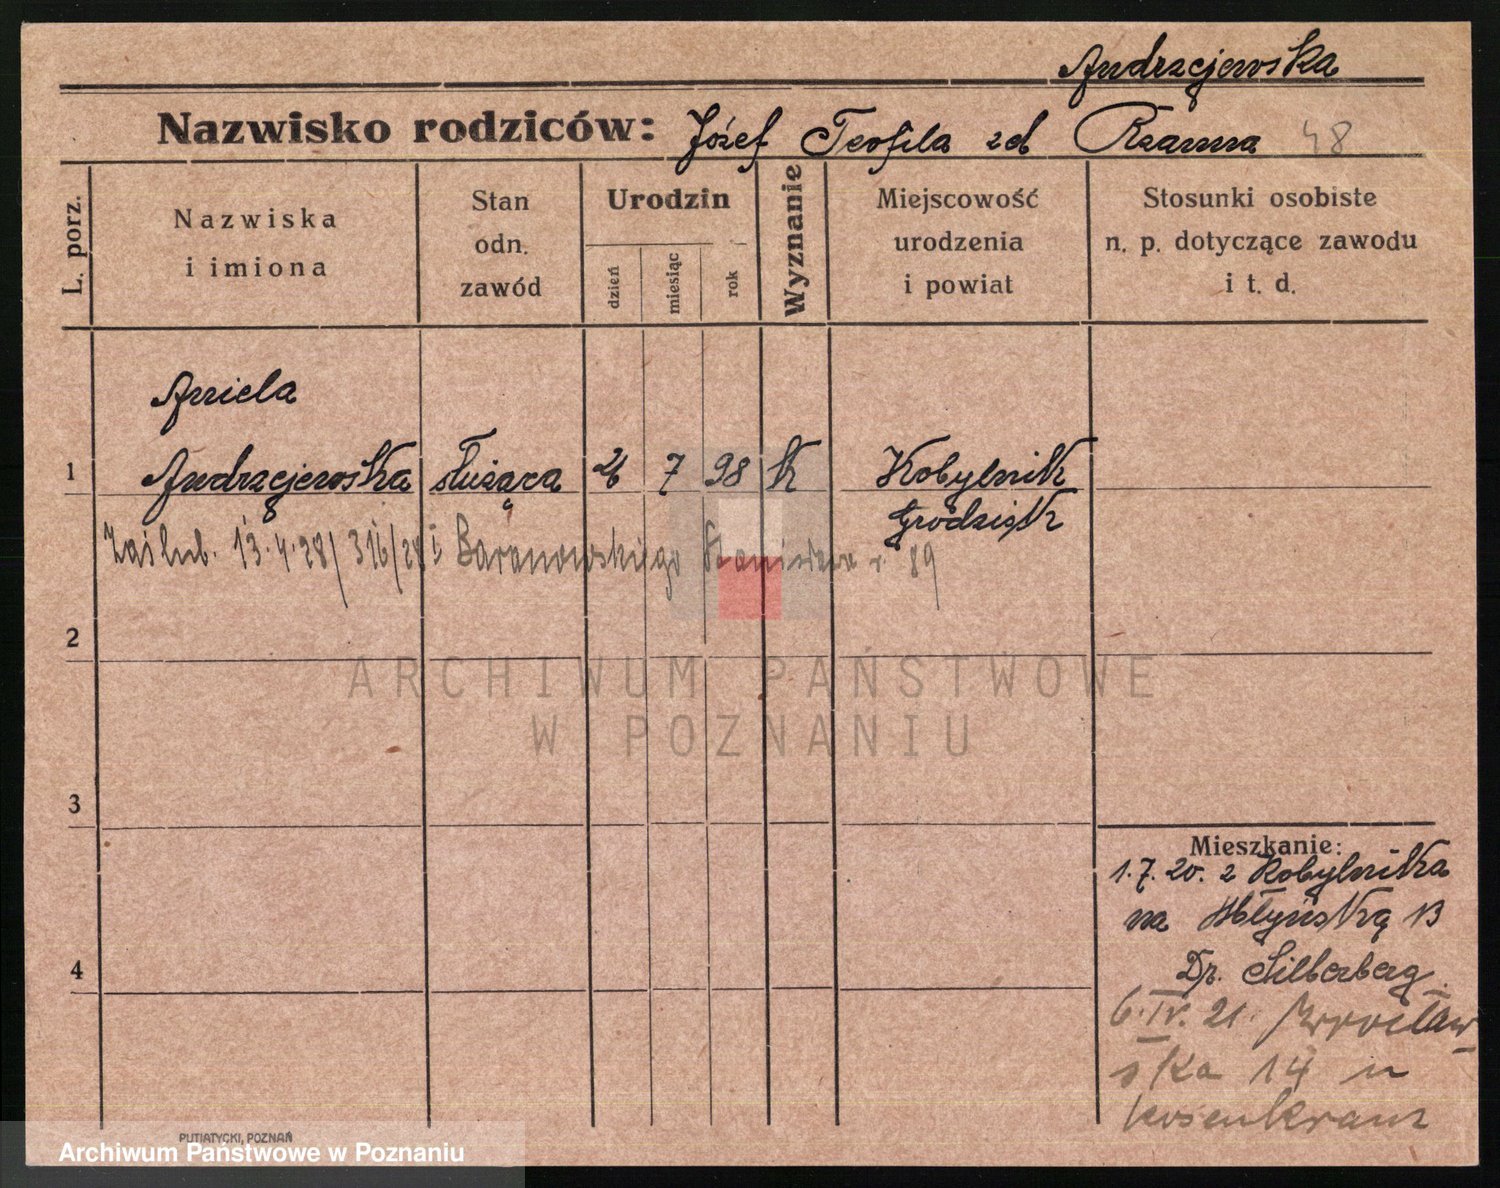 Andrzejewska
Nazwisko rodziców: Józef Teofila zd 48
L. porz.
Nazwiska
i imiona
Stan
odn.
zawód
Urodzin
dzień
miesiąc
rok
Wyznanie
Miejscowość
urodzenia
i powiat
Stosunki osobiste
n. p. dotyczące zawodu
i t. d.
Aniela
1 Andrzejewska służąca 7 98 k Kobylnik
Grodzisk
Zaślub. 13.4.28/316/28 Baranowskiego Stanisława r. 89
2
ARCHIWUM PAŃSTWOWE
W POZNANIU
3
Mieszkanie:
1.7.20. z Kobylnika
na Młyńską 13
Dr. Silberberg
4
6.IV.21. Wrocław
ska 14 u
Rosenkranz
PUTIATYCKI, POZNAŃ
Archiwum Państwowe w Poznaniu